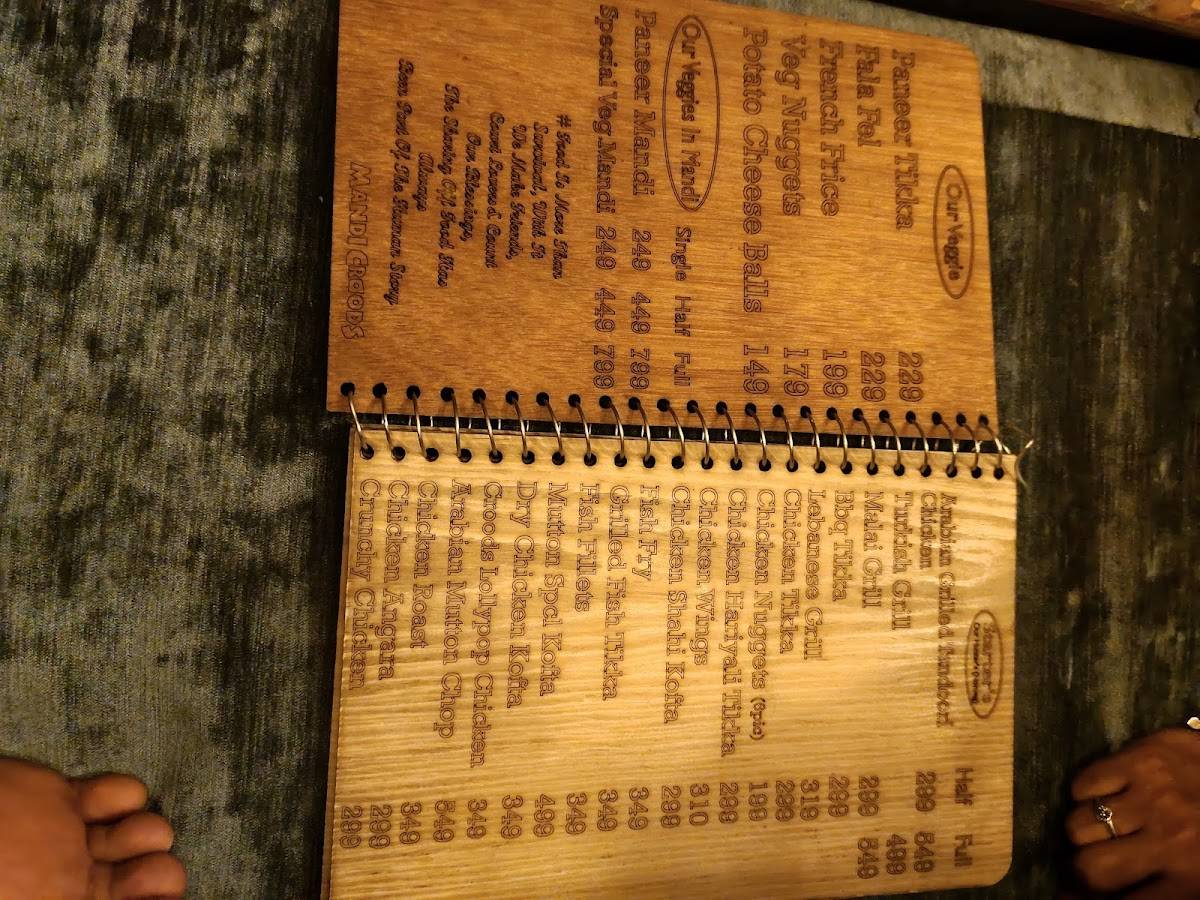 Our Veggie
Paneer Tikka 229
Fala Fel 229
French Frice 199
Veg Nuggets 179
Potato Cheese Balls 149
Our Veggies In Mandi Single Half Full
Paneer Mandi 249 449 799
Special Veg.Mandi 249 449 799
# Food Is More Than
Survival, With It
We Make Friends,
Court Lovers & Count
Our Blessings,
The Sharing Off Food Has
Always
Been Part Of The Human Story
MANDI CROODS
Starter's
Half Full
Arabian Grilled Tandoori
Chicken 299 549
Turkish Grill 499
Malai Grill 299 549
Bbq Tikka 299
Lebanese Grill 319
Chicken Tikka 299
Chicken Nuggets (6pic) 199
Chicken Hariyali Tikka 299
Chicken Wings 310
Chicken Shahi Kofta 299
Fish Fry 349
Grilled Fish Tikka 349
Fish Fillets 349
Mutton Spcl Kofta 499
Dry Chicken Kofta 349
Croods Lollypop Chicken 349
Arabian Mutton Chop 549
Chicken Roast 349
Chicken Angara 299
Crunchy Chicken 299